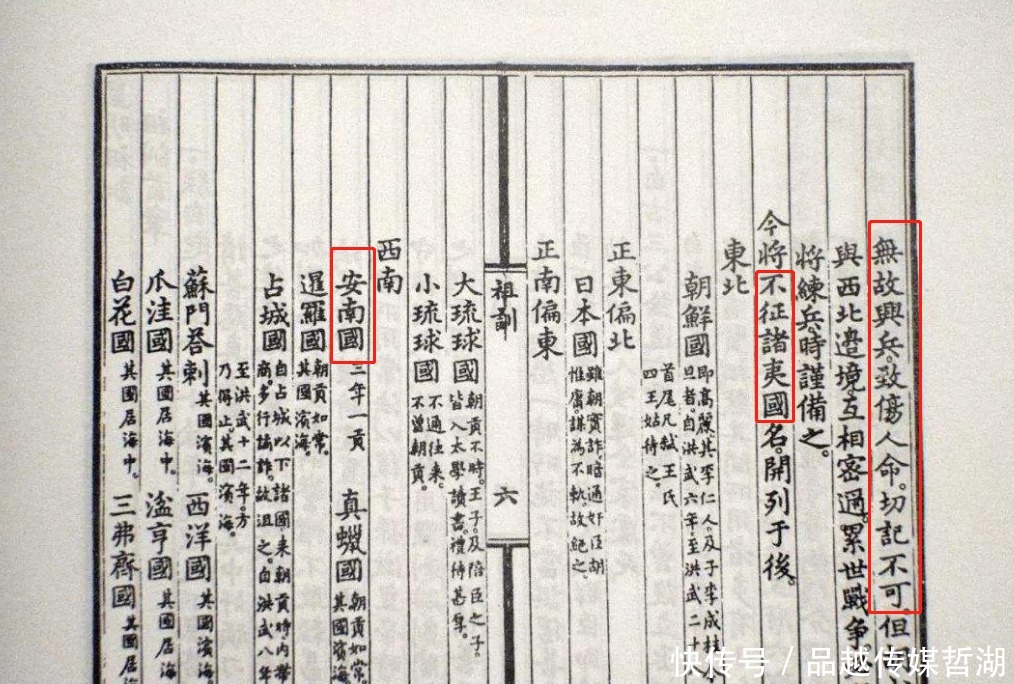 無故興兵。致傷人命。切記不可。但
與西北邊境。互相密邇。累世戰爭。
將練兵。時謹備之。
今將不征諸夷國名。開列于後。
東北
朝鮮國 即高麗其李仁人。及子李成桂
旦者。自洪武六年。至洪武二十
首尾凡弒王氏
四王姑待之。
正東偏北
日本國 雖朝實詐暗通奸臣胡
惟庸。謀為不軌。故絕之。
正南偏東
祖訓 六
大琉球國 朝貢不時。王子。及陪臣之子。
皆入太學讀書。禮待甚厚。
小琉球國 不通往來。
不曾朝貢。
西南
安南國 三年一貢 真蠟國 朝貢如常。
其國濱海
暹羅國 朝貢如常。
其國濱海。
占城國 自占城以下諸國。來朝貢時。內帶
商。多行譎詐。故沮之。自洪武八年
至洪武十二年。方
乃得止。其國濱海。
蘇門荅剌 其國濱海。 西洋國 其國濱海
爪洼國 其國居海中。 湓亨國 其國居海
白花國 其國居海中。 三弗齊國 其國居海
快传号 / 品越传媒哲湖